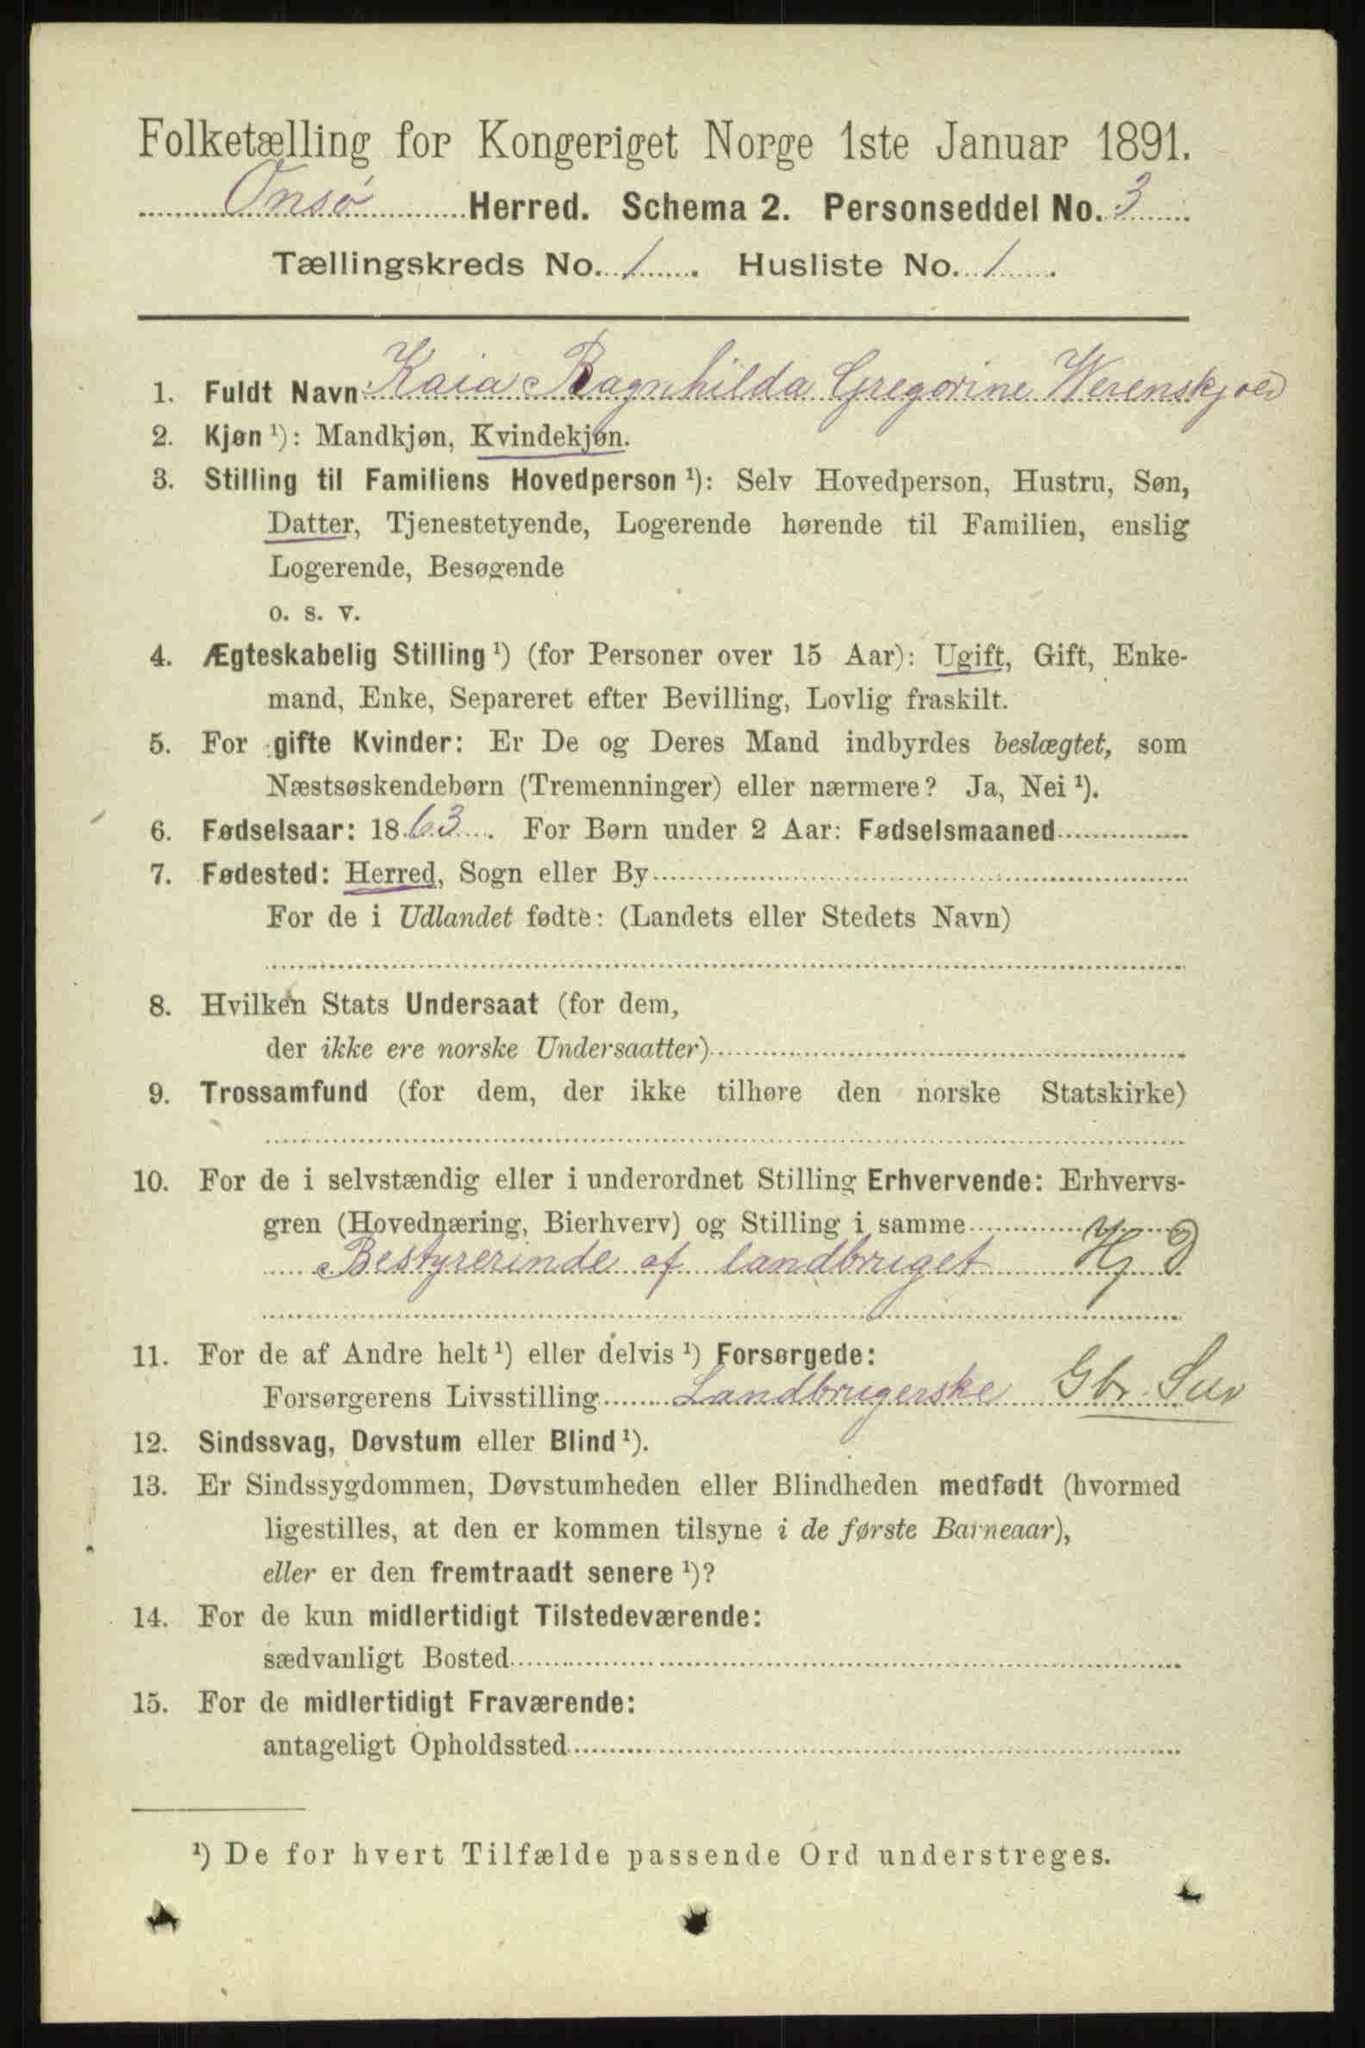 Folketælling for Kongeriget Norge 1ste Januar 1891.
Onsø Herred. Schema 2. Personseddel No. 3
Tællingskreds No. 1. Husliste No. 1.
1. Fuldt Navn Kaia Ragnhilda Gregorine Werenskjold
2. Kjøn ¹): Mandkjøn, Kvindekjøn.
3. Stilling til Familiens Hovedperson ¹): Selv Hovedperson, Hustru, Søn,
Datter, Tjenestetyende, Logerende hørende til Familien, enslig
Logerende, Besøgende
o. s. v.
4. Ægteskabelig Stilling ¹) (for Personer over 15 Aar): Ugift, Gift, Enke-
mand, Enke, Separeret efter Bevilling, Lovlig fraskilt.
5. For gifte Kvinder: Er De og Deres Mand indbyrdes beslægtet, som
Næstsøskendebørn (Tremenninger) eller nærmere? Ja, Nei ¹).
6. Fødselsaar: 1863. For Børn under 2 Aar: Fødselsmaaned
7. Fødested: Herred, Sogn eller By
For de i Udlandet fødte: (Landets eller Stedets Navn)
8. Hvilken Stats Undersaat (for dem,
der ikke ere norske Undersaatter)
9. Trossamfund (for dem, der ikke tilhøre den norske Statskirke)
10. For de i selvstændig eller i underordnet Stilling Erhvervende: Erhvervs-
gren (Hovednæring, Bierhverv) og Stilling i samme
Bestyrerinde af landbruget Hj D
11. For de af Andre helt ¹) eller delvis ¹) Forsørgede:
Forsørgerens Livsstilling Landbrugerske Gbr.
12. Sindssvag, Døvstum eller Blind ¹).
13. Er Sindssygdommen, Døvstumheden eller Blindheden medfødt (hvormed
ligestilles, at den er kommen tilsyne i de første Barneaar),
eller er den fremtraadt senere ¹)?
14. For de kun midlertidigt Tilstedeværende:
sædvanligt Bosted
15. For de midlertidigt Fraværende:
antageligt Opholdssted
¹) De for hvert Tilfælde passende Ord understreges.